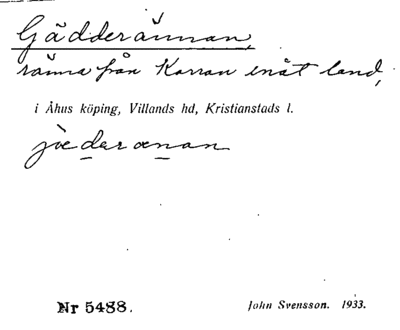 Gädderännan,
ränna från Korran inåt land,
i Åhus köping, Villands hd, Kristianstads l.
jòederœnan
Nr 5488. John Svensson. 1933.